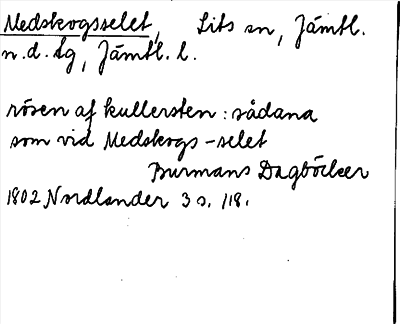 Medskogsselet, Lits sn, Jämtl.
n. d. Lg, Jämtl. l.
rösen af kullersten : sådana
som vid Medskogs-selet
Burmans Dagböcker
1802 Nordlander 3 s. 118.